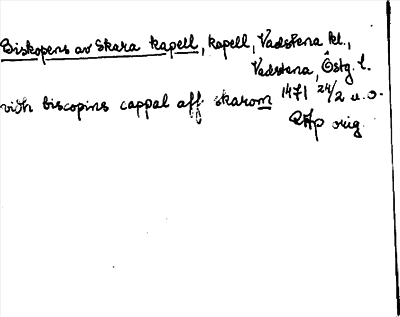 Biskopens av Skara kapell, kapell, Vadstena kl.,
Vadstena, Östg. l.
widh biscopins cappal aff skarom 1471 24/2 u.o.
RAp orig.